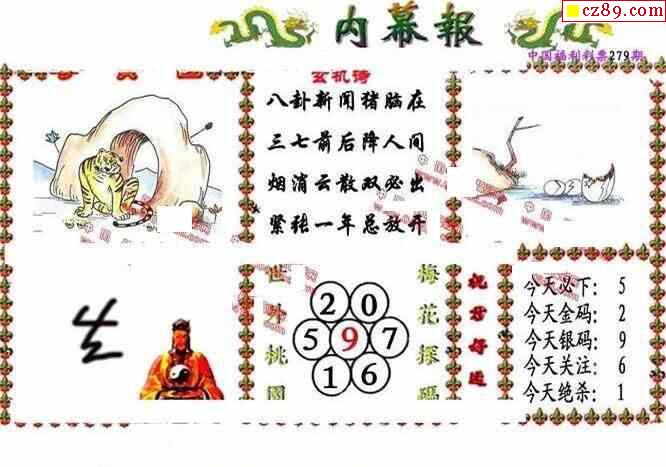 cz89.com
内幕报
中国福利彩票279期
玄机诗
八卦新闻猪脑在
三七前后降人间
烟消云散双必出
紧张一年总放开
世外桃园
2 0
5 9 7
1 6
梅花探码
祝君好运
今天必下: 5
今天金码: 2
今天银码: 9
今天关注: 6
今天绝杀: 1